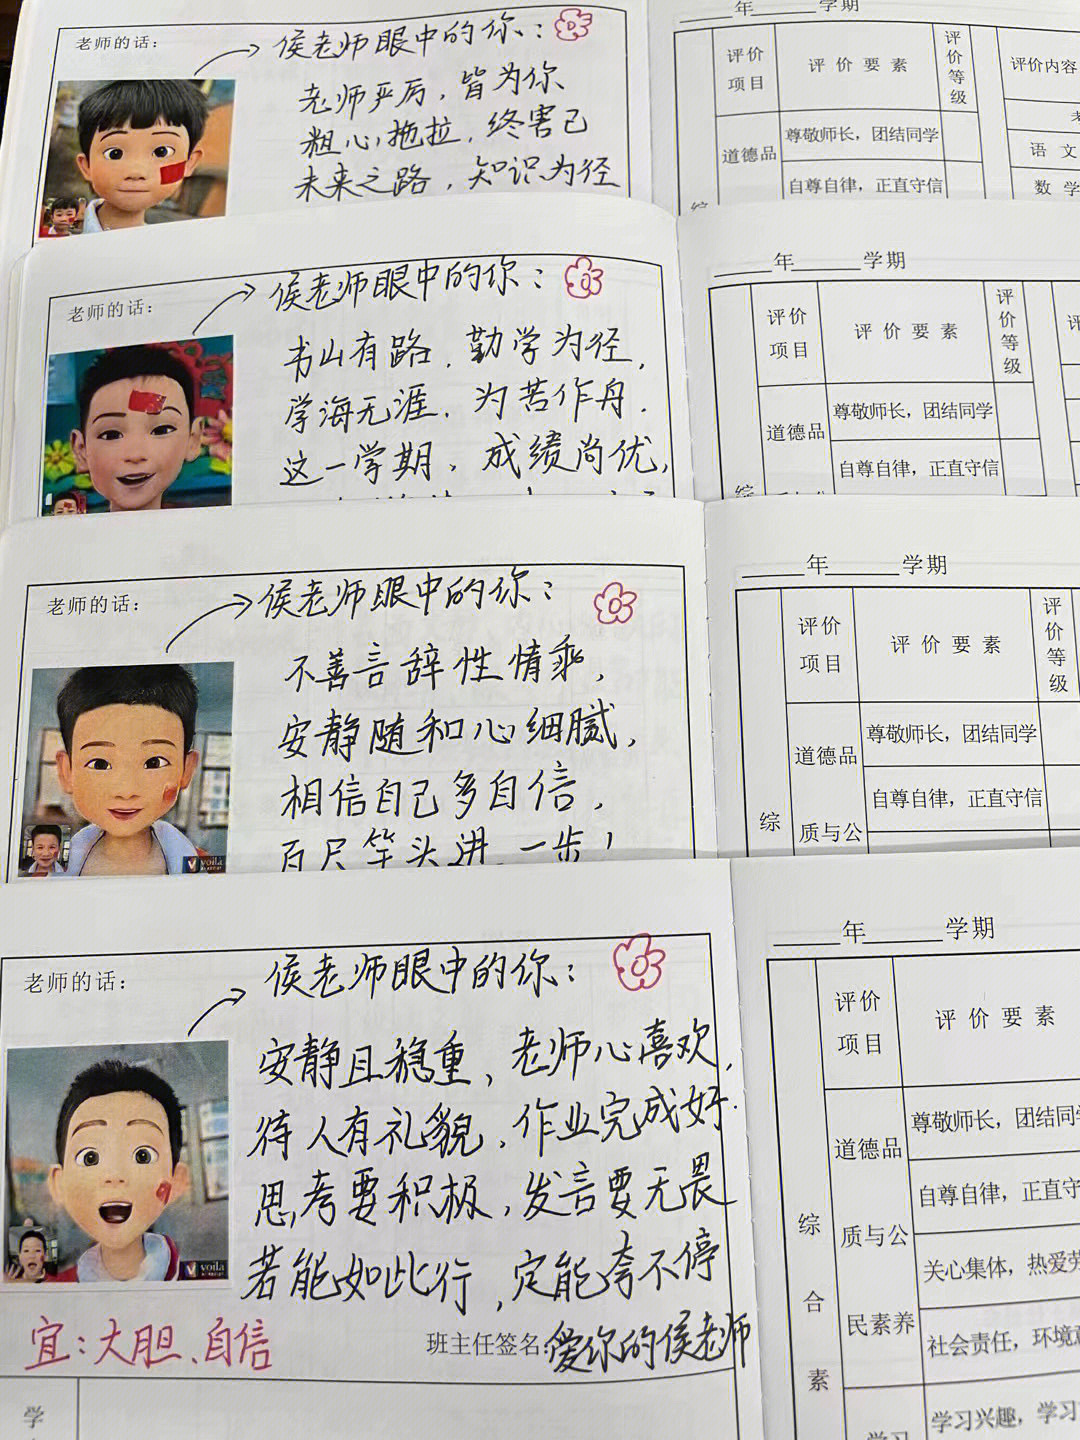 老师的话：
侯老师眼中的你：
老师严厉，皆为你
粗心拖拉，终害己
未来之路，知识为径
年 学期
评价项目
评价要素
评价等级
评价内容
道德品
尊敬师长，团结同学
自尊自律，正直守信
语文
数学
综
老师的话：
侯老师眼中的你：
书山有路，勤学为径，
学海无涯，为苦作舟．
这一学期，成绩尚优，
年 学期
评价项目
评价要素
评价等级
道德品
尊敬师长，团结同学
自尊自律，正直守信
综
老师的话：
侯老师眼中的你：
不善言辞性情乖，
安静随和心细腻，
相信自己多自信，
百尺竿头进一步！
voilà
年 学期
评价项目
评价要素
评价等级
道德品
质与公
尊敬师长，团结同学
自尊自律，正直守信
综
老师的话：
侯老师眼中的你：
安静且稳重，老师心喜欢，
待人有礼貌，作业完成好．
思考要积极，发言要无畏
若能如此行，定能夸不停
voilà
宜：大胆、自信
班主任签名：爱你的侯老师
学
年 学期
评价项目
评价要素
道德品
质与公
民素养
尊敬师长，团结同
自尊自律，正直守
关心集体，热爱劳
社会责任，环境意
综合素
学习
学习兴趣，学习